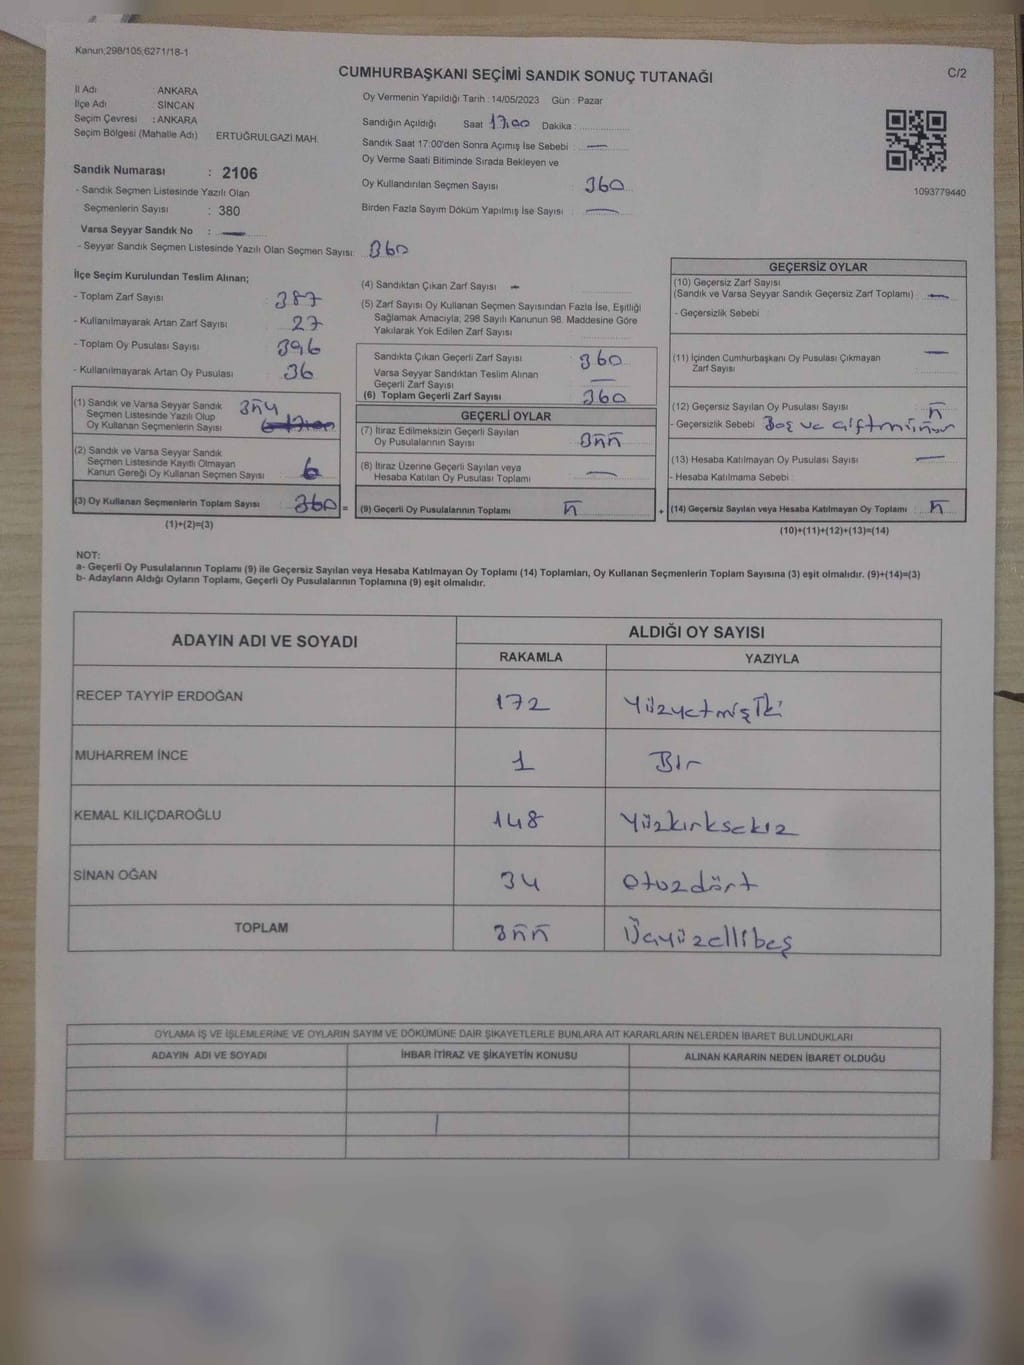 Kanun;298/105,6271/18-1
CUMHURBAŞKANI SEÇİMİ SANDIK SONUÇ TUTANAĞI
C/2
İl Adı : ANKARA
İlçe Adı : SİNCAN
Seçim Çevresi : ANKARA
Seçim Bölgesi (Mahalle Adı) ERTUĞRULGAZİ MAH.
Sandık Numarası : 2106
- Sandık Seçmen Listesinde Yazılı Olan
Seçmenlerin Sayısı : 380
Varsa Seyyar Sandık No : —
- Seyyar Sandık Seçmen Listesinde Yazılı Olan Seçmen Sayısı: 360
Oy Vermenin Yapıldığı Tarih : 14/05/2023 Gün : Pazar
Sandığın Açıldığı Saat 17:00 Dakika :
Sandık Saat 17:00'den Sonra Açımış İse Sebebi : —
Oy Verme Saati Bitiminde Sırada Bekleyen ve
Oy Kullandırılan Seçmen Sayısı : 360
Birden Fazla Sayım Döküm Yapılmış İse Sayısı : —
1093779440
İlçe Seçim Kurulundan Teslim Alınan;
- Toplam Zarf Sayısı : 387
- Kullanılmayarak Artan Zarf Sayısı : 27
- Toplam Oy Pusulası Sayısı : 396
- Kullanılmayarak Artan Oy Pusulası : 36
(1) Sandık ve Varsa Seyyar Sandık
Seçmen Listesinde Yazılı Olup
Oy Kullanan Seçmenlerin Sayısı 354
(2) Sandık ve Varsa Seyyar Sandık
Seçmen Listesinde Kayıtlı Olmayan
Kanun Gereği Oy Kullanan Seçmen Sayısı 6
(3) Oy Kullanan Seçmenlerin Toplam Sayısı 360 =
(1)+(2)=(3)
(4) Sandıktan Çıkan Zarf Sayısı : —
(5) Zarf Sayısı Oy Kullanan Seçmen Sayısından Fazla İse, Eşitliği
Sağlamak Amacıyla, 298 Sayılı Kanunun 98. Maddesine Göre
Yakılarak Yok Edilen Zarf Sayısı :
Sandıkta Çıkan Geçerli Zarf Sayısı : 360
Varsa Seyyar Sandıktan Teslim Alınan
Geçerli Zarf Sayısı : —
(6) Toplam Geçerli Zarf Sayısı : 360
GEÇERLİ OYLAR
(7) İtiraz Edilmeksizin Geçerli Sayılan
Oy Pusulalarının Sayısı : 355
(8) İtiraz Üzerine Geçerli Sayılan veya
Hesaba Katılan Oy Pusulası Toplamı : —
(9) Geçerli Oy Pusulalarının Toplamı : 5 +
GEÇERSİZ OYLAR
(10) Geçersiz Zarf Sayısı
(Sandık ve Varsa Seyyar Sandık Geçersiz Zarf Toplamı) : —
- Geçersizlik Sebebi :
(11) İçinden Cumhurbaşkanı Oy Pusulası Çıkmayan
Zarf Sayısı : —
(12) Geçersiz Sayılan Oy Pusulası Sayısı : 5
- Geçersizlik Sebebi : Boş ve Çiftmühür
(13) Hesaba Katılmayan Oy Pusulası Sayısı : —
- Hesaba Katılmama Sebebi :
(14) Geçersiz Sayılan veya Hesaba Katılmayan Oy Toplamı : 5
(10)+(11)+(12)+(13)=(14)
NOT:
a- Geçerli Oy Pusulalarının Toplamı (9) ile Geçersiz Sayılan veya Hesaba Katılmayan Oy Toplamı (14) Toplamları, Oy Kullanan Seçmenlerin Toplam Sayısına (3) eşit olmalıdır. (9)+(14)=(3)
b- Adayların Aldığı Oyların Toplamı, Geçerli Oy Pusulalarının Toplamına (9) eşit olmalıdır.
ADAYIN ADI VE SOYADI
ALDIĞI OY SAYISI
RAKAMLA YAZIYLA
RECEP TAYYİP ERDOĞAN 172 Yüzyetmişİki
MUHARREM İNCE 1 Bir
KEMAL KILIÇDAROĞLU 148 Yüzkırksekiz
SİNAN OĞAN 34 Otuzdört
TOPLAM 355 Üçyüzellibeş
OYLAMA İŞ VE İŞLEMLERİNE VE OYLARIN SAYIM VE DÖKÜMÜNE DAİR ŞİKAYETLERLE BUNLARA AİT KARARLARIN NELERDEN İBARET BULUNDUKLARI
ADAYIN ADI VE SOYADI İHBAR İTİRAZ VE ŞİKAYETİN KONUSU ALINAN KARARIN NEDEN İBARET OLDUĞU